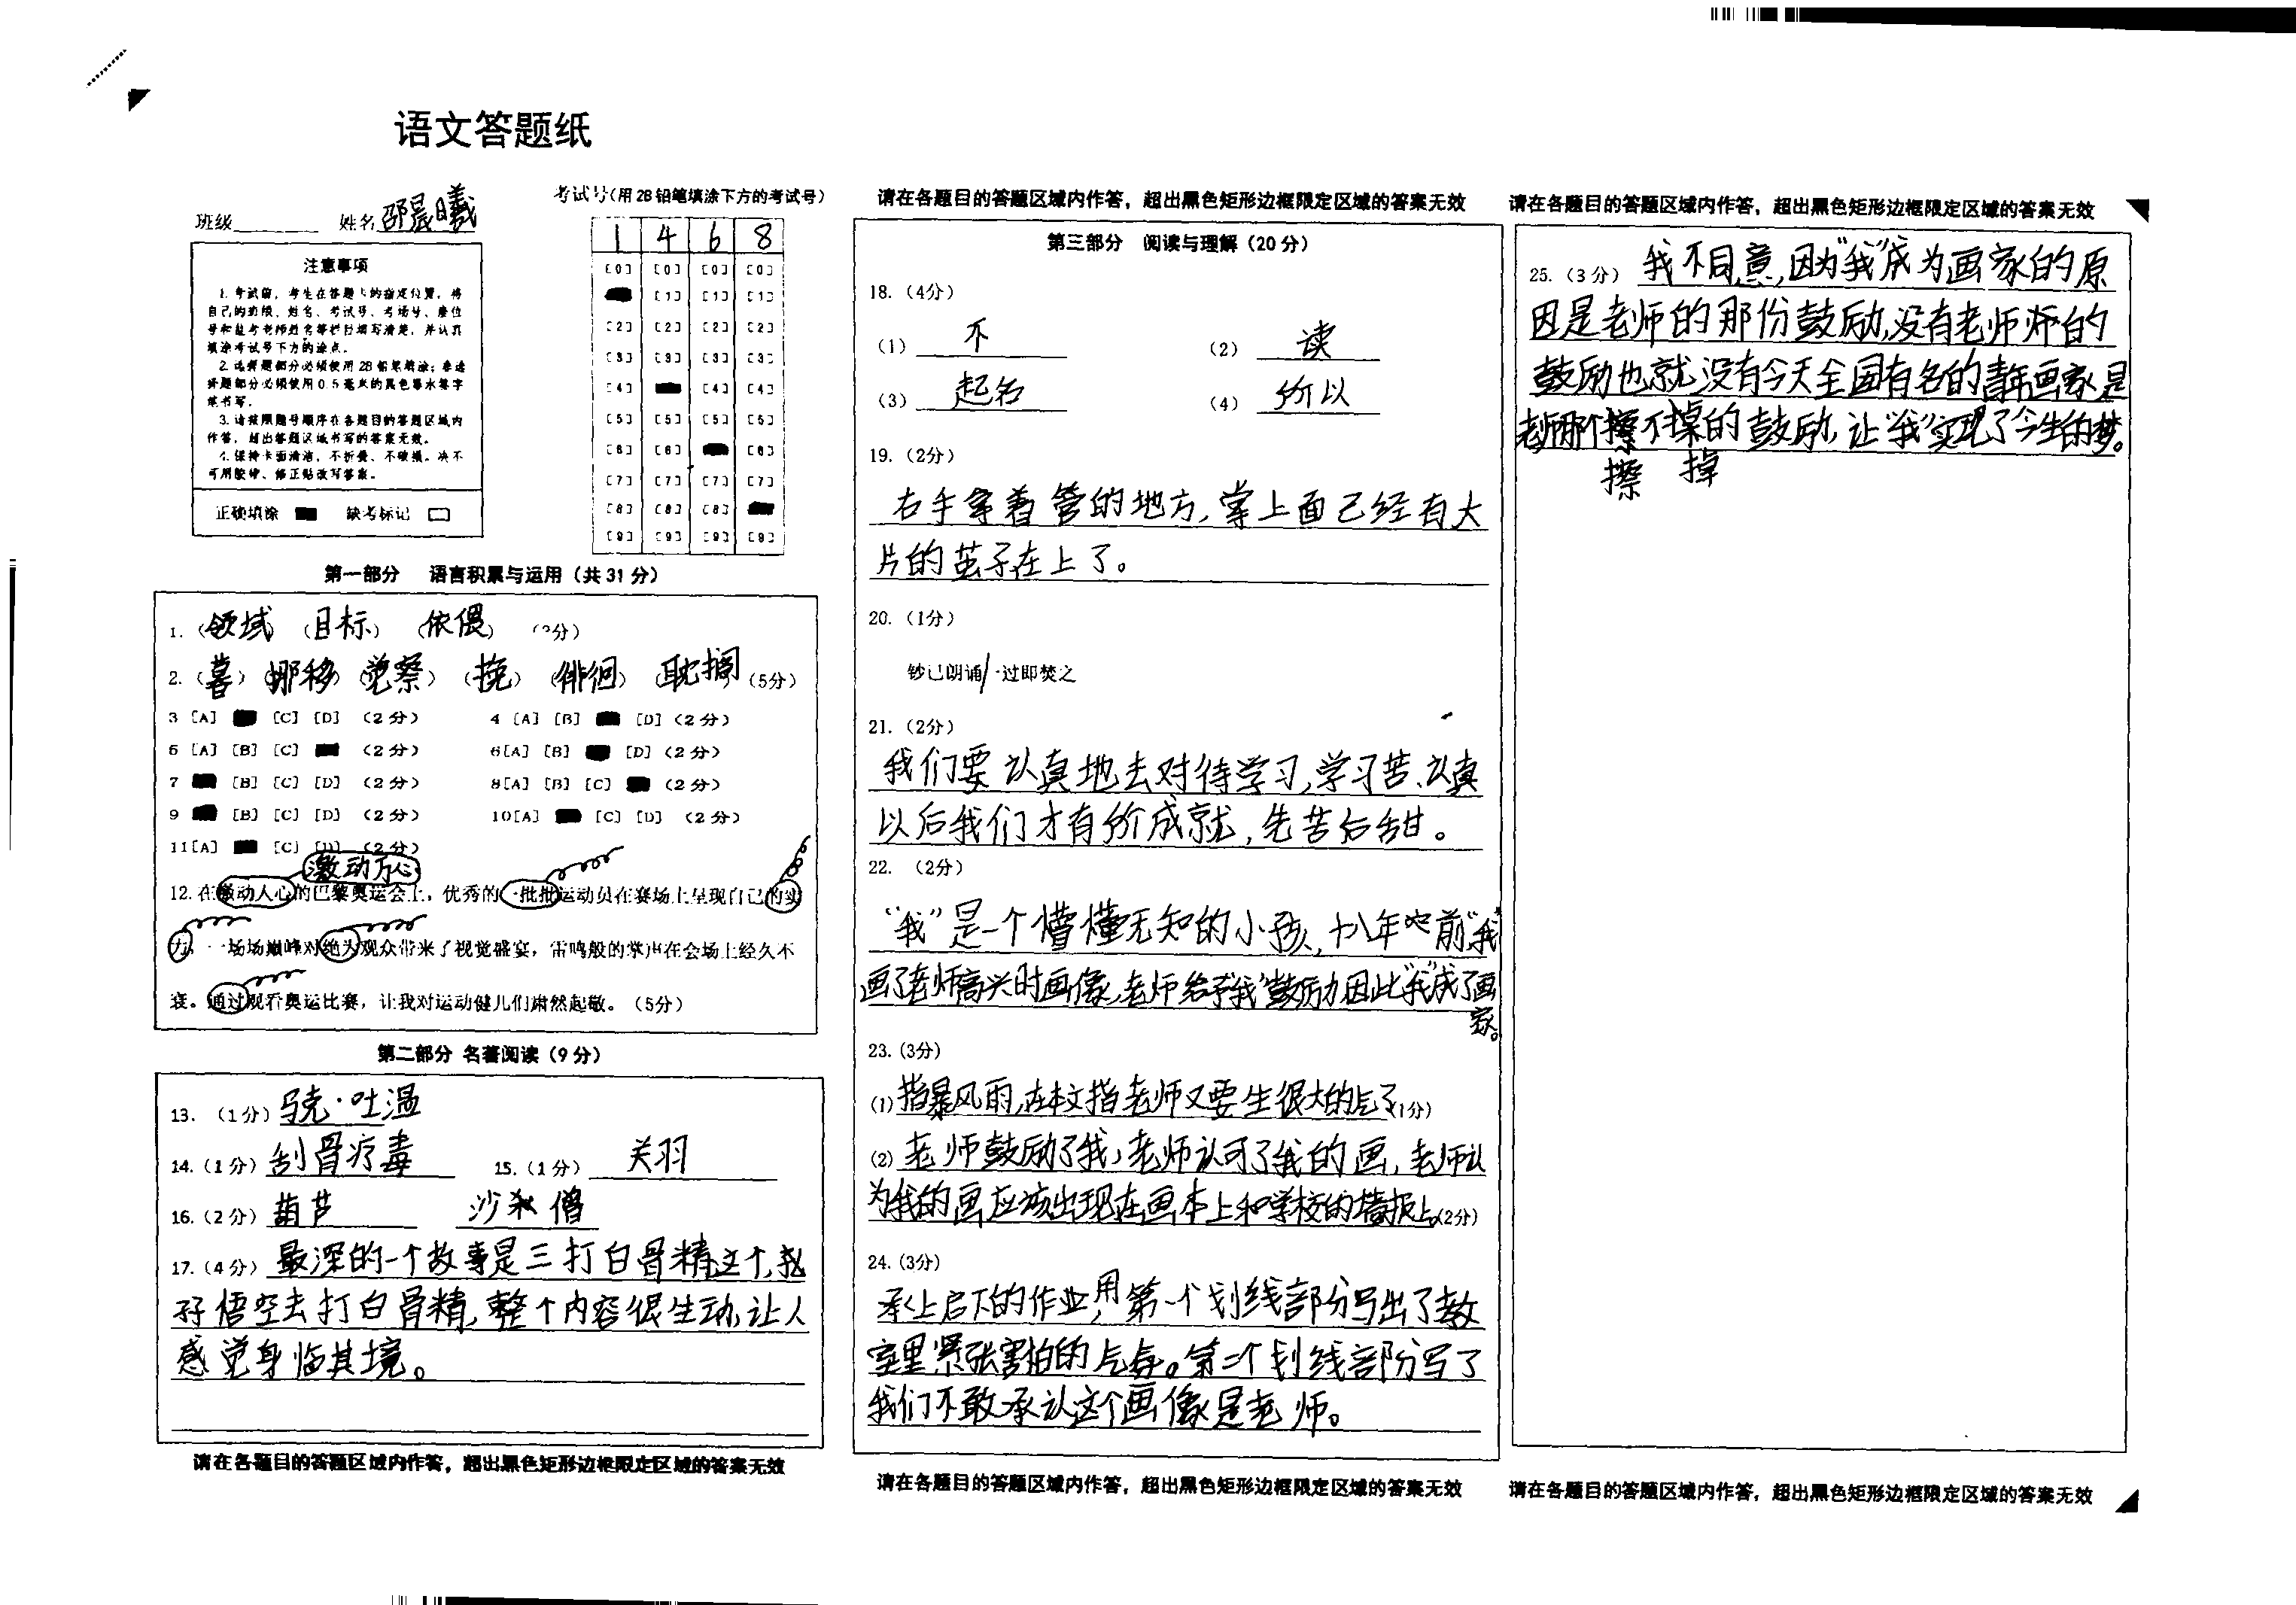 语文答题纸
班级 姓名 邵晨曦
考试号(用2B铅笔填涂下方的考试号)
1 4 6 8
注意事项
1. 考试前,考生在答题卡的指定位置,将
自己的班级、姓名、考试号、考场号、座位
号和监考老师姓名等栏目填写清楚,并认真
填涂考试号下方的涂点。
2. 选择题部分必须使用2B铅笔填涂;非选
择题部分必须使用0.5毫米的黑色墨水签字
笔书写。
3. 请按照题号顺序在各题目的答题区域内
作答,超出答题区域书写的答案无效。
4. 保持卡面清洁,不折叠、不破损。决不
可用胶带、修正贴改写答案。
正确填涂 缺考标记
[0] [0] [0] [0]
[1] [1] [1]
[2] [2] [2] [2]
[3] [3] [3] [3]
[4] [4] [4]
[5] [5] [5] [5]
[6] [6] [6]
[7] [7] [7] [7]
[8] [8] [8]
[9] [9] [9] [9]
第一部分 语言积累与运用(共31分)
1. (领域) (目标) (依偎) (2分)
2. (暮) (挪移) (觉察) (挽) (徘徊) (耽搁) (5分)
3 [A] [C] [D] (2分) 4 [A] [B] [D] (2分)
5 [A] [B] [C] (2分) 6[A] [B] [D] (2分)
7 [B] [C] [D] (2分) 8[A] [B] [C] (2分)
9 [B] [C] [D] (2分) 10[A] [C] [D] (2分)
11[A] [C] [D] (2分)
激动万心
12. 在激动人心的巴黎奥运会上,优秀的一批批运动员在赛场上呈现自己的实
力,一场场巅峰对绝为观众带来了视觉盛宴,雷鸣般的掌声在会场上经久不
衰。通过观看奥运比赛,让我对运动健儿们肃然起敬。(5分)
第二部分 名著阅读(9分)
13. (1分) 马克·吐温
14. (1分) 刮骨疗毒 15. (1分) 关羽
16. (2分) 葫芦 沙僧
17. (4分) 最深的一个故事是三打白骨精这个,
孙悟空去打白骨精,整个内容很生动,让人
感觉身临其境。
请在各题目的答题区域内作答,超出黑色矩形边框限定区域的答案无效
请在各题目的答题区域内作答,超出黑色矩形边框限定区域的答案无效
第三部分 阅读与理解(20分)
18. (4分)
(1) 不 (2) 读
(3) 起名 (4) 所以
19. (2分)
右手拿着管的地方,掌上面已经有大
片的茧子在上了。
20. (1分)
钞已朗诵/一过即焚之
21. (2分)
我们要认真地去对待学习,学习苦、认真
以后我们才有价成就,先苦后甜。
22. (2分)
“我”是一个懵懂无知的小孩,十八年前“我”
画了老师高兴时画像,老师给予“我”鼓励因此“我”成了画
家。
23. (3分)
(1) 指暴风雨,在本文指老师又要生很大的气了(1分)
(2) 老师鼓励了我,老师认可了我的画,老师认
为我的画应该出现在画本上和学校的墙报上。(2分)
24. (3分)
承上启下的作用,第一个划线部分写出了教
室里紧张害怕的气氛。第二个划线部分写了
我们不敢承认这个画像是老师。
请在各题目的答题区域内作答,超出黑色矩形边框限定区域的答案无效
请在各题目的答题区域内作答,超出黑色矩形边框限定区域的答案无效
25. (3分) 我不同意,因为“我”成为画家的原
因是老师的那份鼓励,没有老师师的
鼓励也就没有今天全国有名的青年画家是
老师那个擦不掉的鼓励,让“我”实现了今生的梦。
擦 掉
请在各题目的答题区域内作答,超出黑色矩形边框限定区域的答案无效